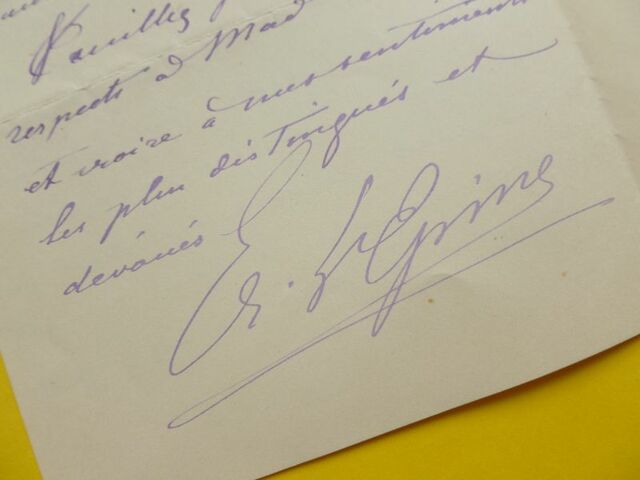 Veuillez
respects à Mad
et croire à mes sentiments
les plus distingués et
dévoués
E. Lépine